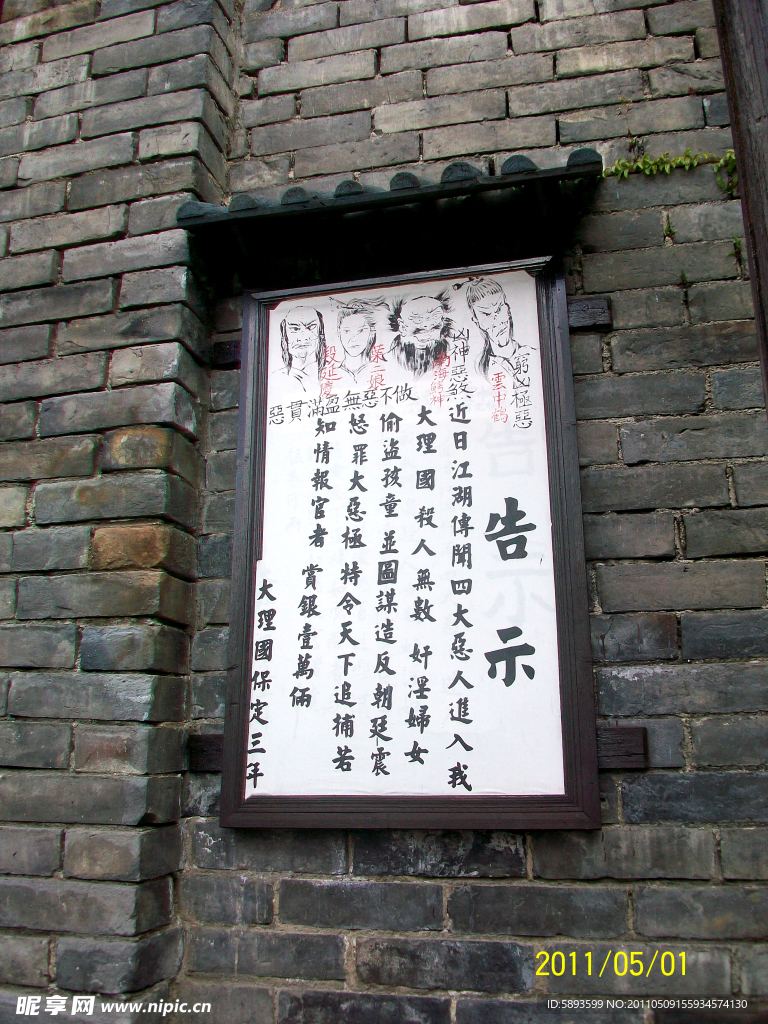 告示
窮凶極惡
雲中鶴
凶神惡煞
南海鱷神
無惡不做
葉二娘
惡貫滿盈
段延慶
近日江湖傳聞四大惡人進入我
大理國殺人無數 奸淫婦女
偷盜孩童 並圖謀造反朝廷震
怒罪大惡極特令天下追捕若
知情報官者 賞銀壹萬倆
大理國保定三年
2011/05/01
昵享网 www.nipic.cn
ID:5893599 NO:20110509155934574130